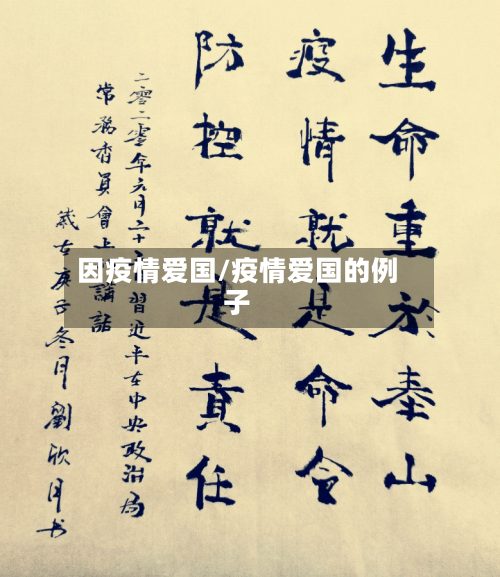 生命重於泰山
疫情就是命令
防控就是責任
二零二零年六月二十 習近平在中央政治局
常務委員會上 講話
歲在庚子冬月劉欣月书
因疫情爱国/疫情爱国的例
子